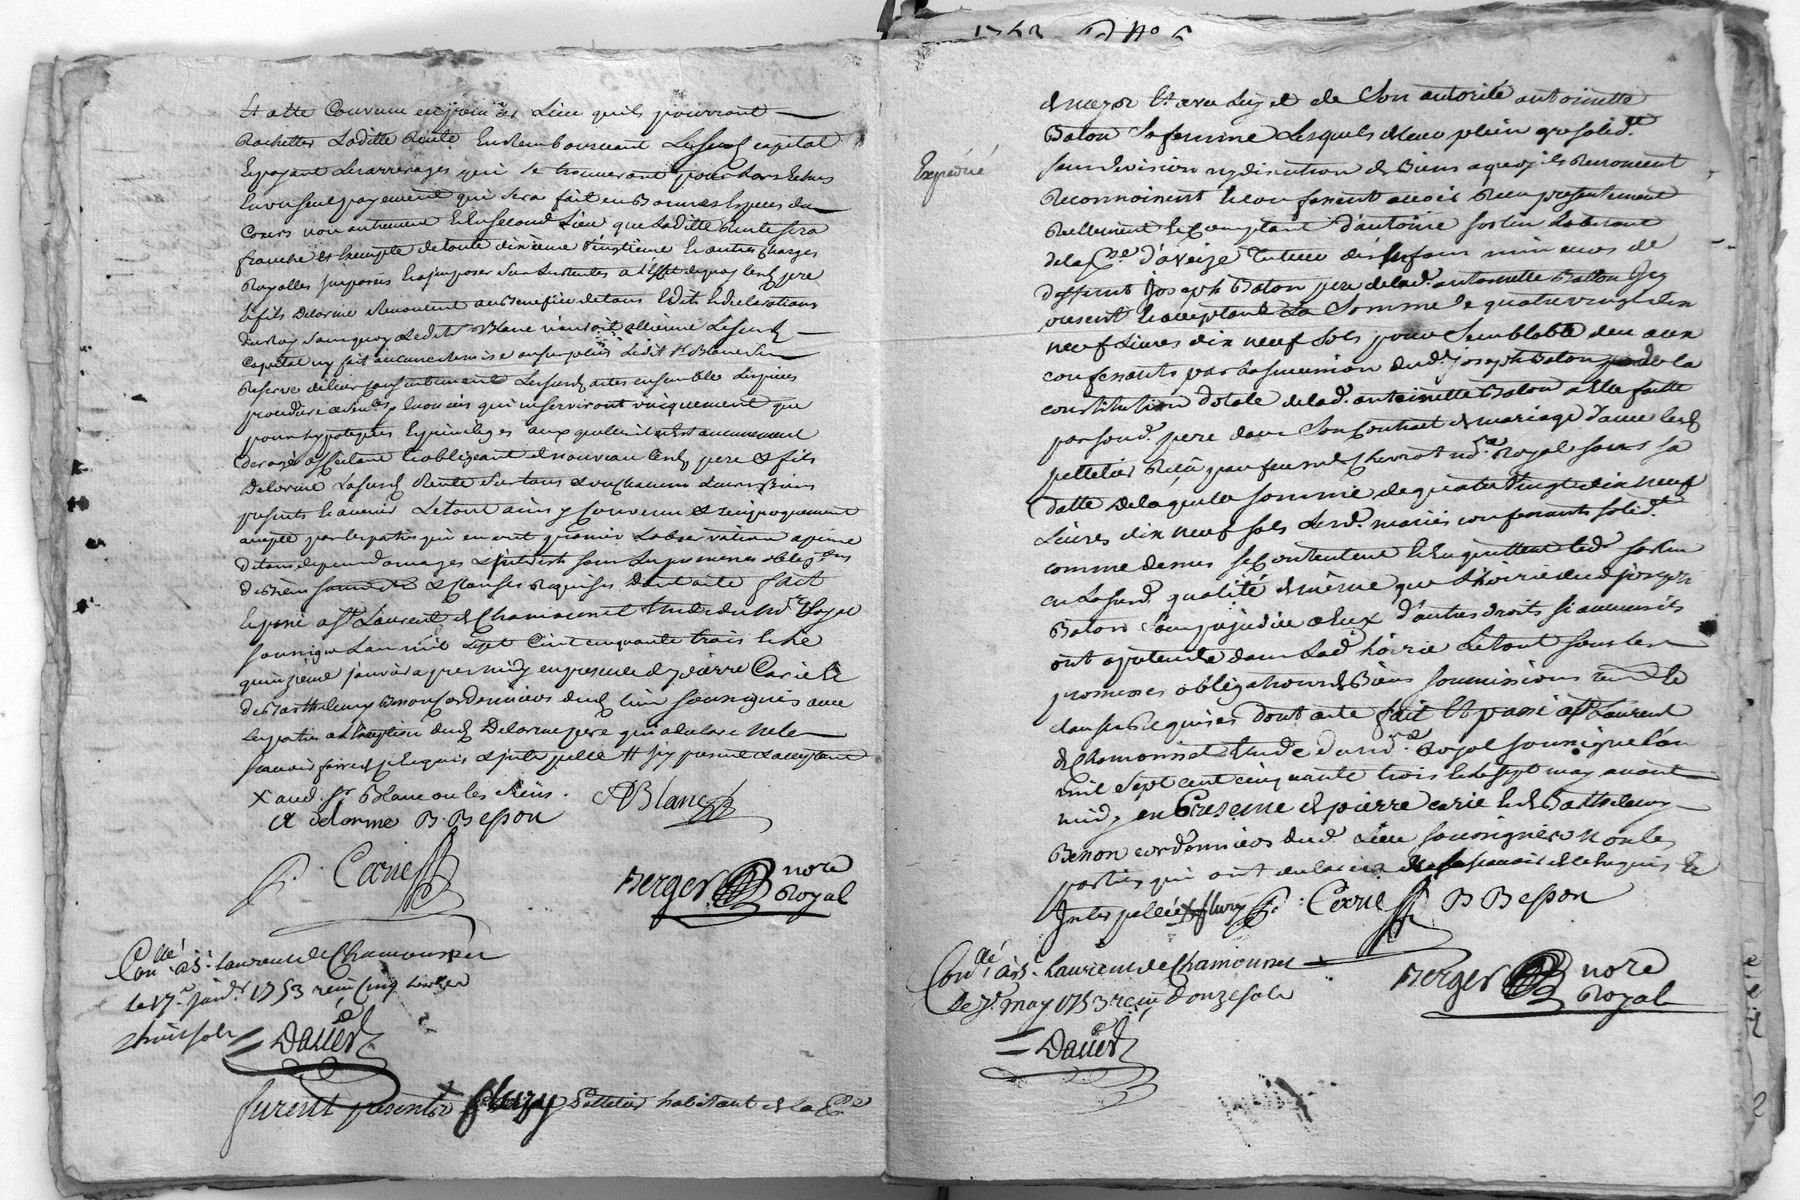 Et atte Convenu en premier Lieu quils pourront
Rachetter Laditte Rente En Remboursant Lesusd capital
Et payant Les arrerages qui se trouveront pour Lors Echus
En un seul payement qui sera fait en Bonnes Especes du
Cours non autrement Et En second Lieu que Laditte Rente sera
franche et Exempte de toute dixieme vingtieme et autres charges
Royalles imposées Et a jmposer
Et fils Delorme Renoncent au Benefice de tous Edits Et declarations
du Roy sans quoy Ledit sr Blanc n'auroit allienné Lesusd
Capital ny fait aucune Remise au surplus Ledit sr Blanc se
Reserve de leur consentement Lesusd actes ensemble Les pieces
qui ne serviront uniquement que
pour hypoteques Et privileges auxquels il n'est aucunement
derogé affectant Et obligeant de nouveau Lesd pere et fils
Delorme Lasusd Rente sur tous et un chacuns Leurs Biens
presents Et avenir Le tout ainsy Convenu et reciproquement
accepté par Les parties qui en ont promis L'observation a peine
de tous depens dommages et jnterest sous Les promesses oblig.ons
de Biens et clauses Requises Dont acte fait
Et passé a st Laurent de Chamousset Etude du nore Royal
soussigné L'an mil sept Cent cinquante trois Et Le
quinzieme janvier apres midy en presence de pierre Carie Et
de Barthelemy Besson Cordonniers dud lieu soussignés avec
Les parties a l'exception dud Delorme pere qui a declaré ne le
sçavoir faire de ce Enquis et jnterpellé # jcy present et acceptant
X aud. sr Blanc ou les siens.
A Blanc
delorme B. Besson
P. Carie
Berger nore Royal
Con.llé a St. Laurent de Chamousset
le 17.e janv.r 1753 reçu Cinq Livres
huit sols
Dauer
furent presents fleury Pelletier habitant de la p.sse
Expedié
Et avec Luy et de Son autorité antoinette
Baton sa femme Lesquels de Leur plein gre solid.nt
sans division ny discution de Biens a quoy ils Renoncent
Reconnoissent Et confessent avoir Reçu presentement
Reellement Et Comptant d'antoine
de la p.sse d'aveize Tuteur des Enfans mineurs de
deffunt Joseph Baton pere de lad. antoinette Baton Jcy
present Et acceptant La Somme de quatre vingt dix
neuf Livres dix neuf sols pour Semblable due aux
confessants par La succession dud. joseph Baton de la
constitution dotale de lad. antoinette Baton a Elle faitte
par sond. pere dans Son Contrat de mariage d'avec led
pelletier Reçu par feu me Chevrot nore Royal sous sa
datte de laquelle somme de quatre vingt dix neuf
Livres dix neuf sols Lesd. mariés confessants solid.nt
comme dessus se Contentent Et En quittent led.
en Lasusd. qualité de même que L'hoirie dud joseph
Baton sans prejudice a Eux d'autres droits si aucuns ils
ont a pretendre dans Lad. hoirie Le tout sous Les
promesses obligations de Biens soumissions renon.s Et
clauses Requises Dont acte fait Et passé a st Laurent
de Chamousset Etude du nore Royal soussigné L'an
mil sept cent cinquante trois Et Le sept may avant
midy en Presence de pierre carie Et de Barthelemy
Besson cordonniers dud. Lieu soussignés non les
parties qui ont declaré ne le sçavoir de ce Enquis Et
Jnterpellés
P. Carie B Besson
Berger nore Royal
Con.llé a St. Laurent de Chamousset
Le 7.e may 1753 reçu Douze sols
Dauer